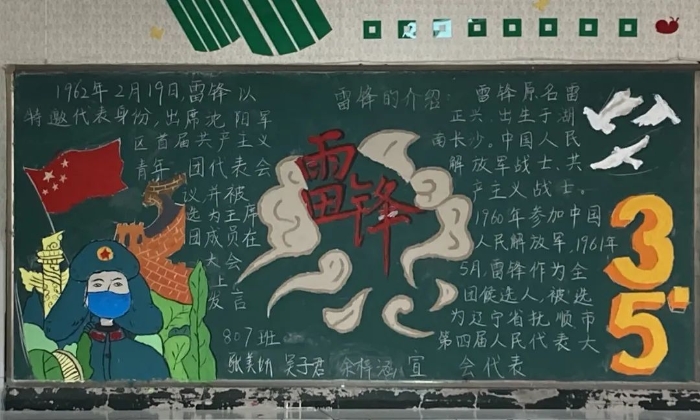 1962年2月19日,雷锋以
特邀代表身份,出席沈阳军
区首届共产主义
青年团代表会
议,并被
选为主席
团成员在
大会
上
发言
雷锋
807班
吴子君 余梓涵 宣
雷锋的介绍:
雷锋原名雷
正兴,出生于湖
南长沙。中国人民
解放军战士、共
产主义战士。
1960年参加中国
人民解放军,1961年
5月,雷锋作为全
团候选人,被选
为辽宁省抚顺市
第四届人民代表大
会代表
35